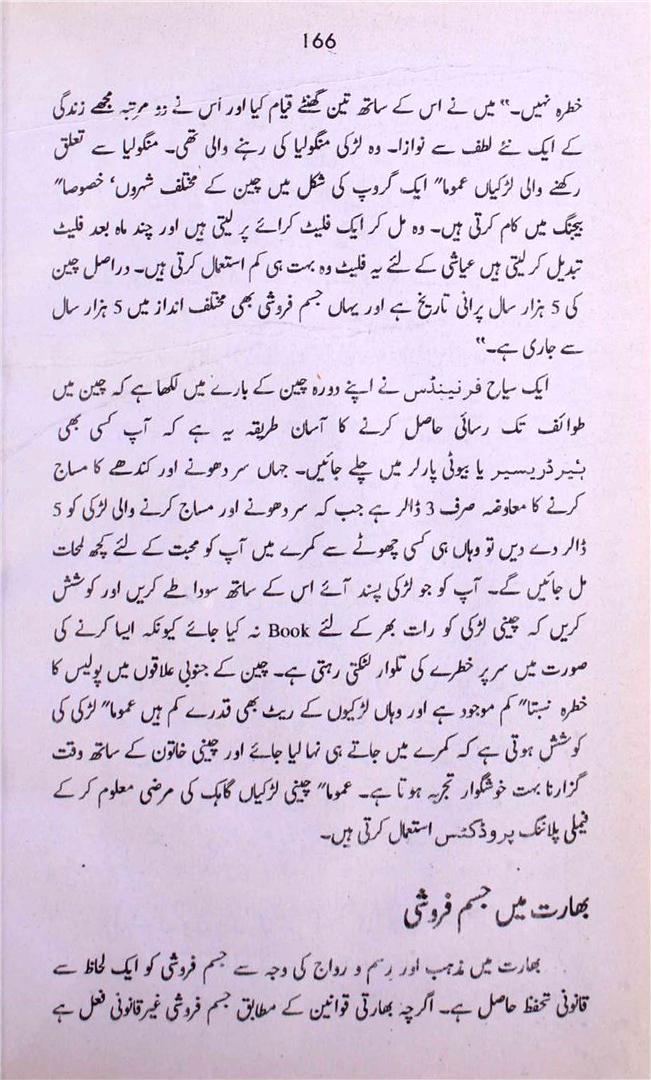 166
خطرہ نہیں۔" میں نے اس کے ساتھ تین گھنٹے قیام کیا اور اس نے دو مرتبہ مجھے زندگی
کے ایک نئے لطف سے نوازا۔ وہ لڑکی منگولیا کی رہنے والی تھی۔ منگولیا سے تعلق
رکھنے والی لڑکیاں عموما" ایک گروپ کی شکل میں چین کے مختلف شہروں، خصوصا"
بیجنگ میں کام کرتی ہیں۔ وہ مل کر ایک فلیٹ کرائے پر لیتی ہیں اور چند ماہ بعد فلیٹ
تبدیل کر لیتی ہیں عیاشی کے لئے یہ فلیٹ وہ بہت ہی کم استعمال کرتی ہیں۔ دراصل چین
کی 5 ہزار سال پرانی تاریخ ہے اور یہاں جسم فروشی بھی مختلف انداز میں 5 ہزار سال
سے جاری ہے۔"
ایک سیاح فرنینڈس نے اپنے دورہ چین کے بارے میں لکھا ہے کہ چین میں
طوائف تک رسائی حاصل کرنے کا آسان طریقہ یہ ہے کہ آپ کسی بھی
ہئیرڈریسیر یا بیوٹی پارلر میں چلے جائیں۔ جہاں سر دھونے اور کندھے کا مساج
کرنے کا معاوضہ صرف 3 ڈالر ہے جب کہ سر دھونے اور مساج کرنے والی لڑکی کو 5
ڈالر دے دیں تو وہاں ہی کسی چھوٹے سے کمرے میں آپ کو محبت کے لئے کچھ لمحات
مل جائیں گے۔ آپ کو جو لڑکی پسند آئے اس کے ساتھ سودا طے کریں اور کوشش
کریں کہ چینی لڑکی کو رات بھر کے لئے Book نہ کیا جائے کیونکہ ایسا کرنے کی
صورت میں سر پر خطرے کی تلوار لٹکتی رہتی ہے۔ چین کے جنوبی علاقوں میں پولیس کا
خطرہ نسبتا" کم موجود ہے اور وہاں لڑکیوں کے ریٹ بھی قدرے کم ہیں عموما" لڑکی کی
کوشش ہوتی ہے کہ کمرے میں جاتے ہی نہا لیا جائے اور چینی خاتون کے ساتھ وقت
گزارنا بہت خوشگوار تجربہ ہوتا ہے۔ عموما" چینی لڑکیاں گاہک کی مرضی معلوم کر کے
فیملی پلاننگ پروڈکٹس استعمال کرتی ہیں۔
بھارت میں جسم فروشی
بھارت میں مذہب اور رسم و رواج کی وجہ سے جسم فروشی کو ایک لحاظ سے
قانونی تحفظ حاصل ہے۔ اگرچہ بھارتی قوانین کے مطابق جسم فروشی غیرقانونی فعل ہے